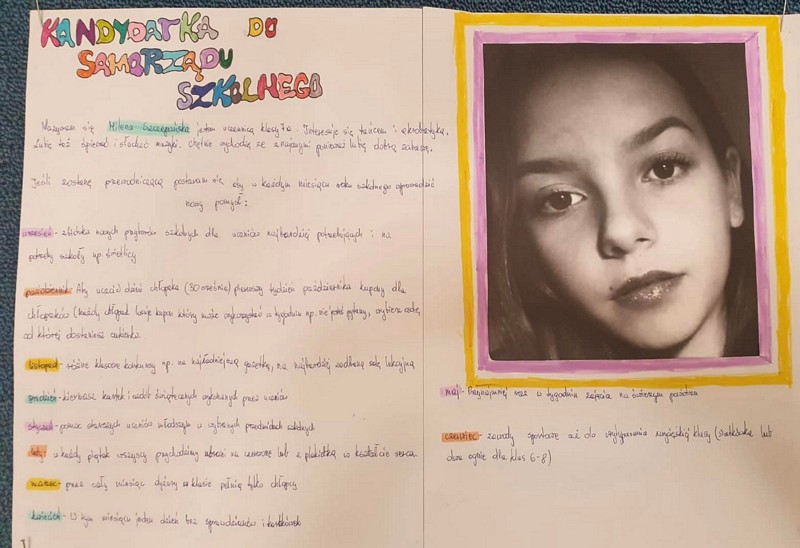 KANDYDATKA DO
SAMORZĄDU
SZKOLNEGO
Nazywam się Milena Szczepańska jestem uczennicą klasy 7a. Interesuje się tańcem i akrobatyką.
Lubię też śpiewać i słuchać muzyki, chętnie wychodzę ze znajomymi ponieważ lubię dobrą zabawę.
Jeśli zostanę przewodniczącą postaram się, aby w każdym miesiącu roku szkolnego wprowadzić
nowy pomysł:
wrzesień - zbiórka nowych przyborów szkolnych dla uczniów najbardziej potrzebujących i na
potrzeby szkoły np. świetlicy
październik - Aby uczcić dzień chłopaka (30 września) pierwszy tydzień października kupony dla
chłopaków (każdy chłopak losuje kupon który może wykorzystać w tygodniu np. nie jesteś pytany, wybierz osobę,
od której dostaniesz cukierka.
listopad - różne klasowe konkursy np. na najładniejszą gazetkę, na najbardziej zadbaną salę lekcyjną
grudzień - kiermasz kartek i ozdób świątecznych wykonanych przez uczniów
styczeń - pomoc starszych uczniów młodszym w wybranych przedmiotach szkolnych
luty - w każdy piątek wszyscy przychodzimy ubrani na czerwono lub z plakietką w kształcie serca.
marzec - przez cały miesiąc dyżury w klasie pełnią tylko chłopcy
kwiecień - W tym miesiącu jeden dzień bez sprawdzianów i kartkówek
maj - Przynajmniej raz w tygodniu zajęcia na świeżym powietrzu
czerwiec - zawody sportowe aż do wytypowania zwycięskiej klasy (siatkówka lub
dwa ognie dla klas 6-8)